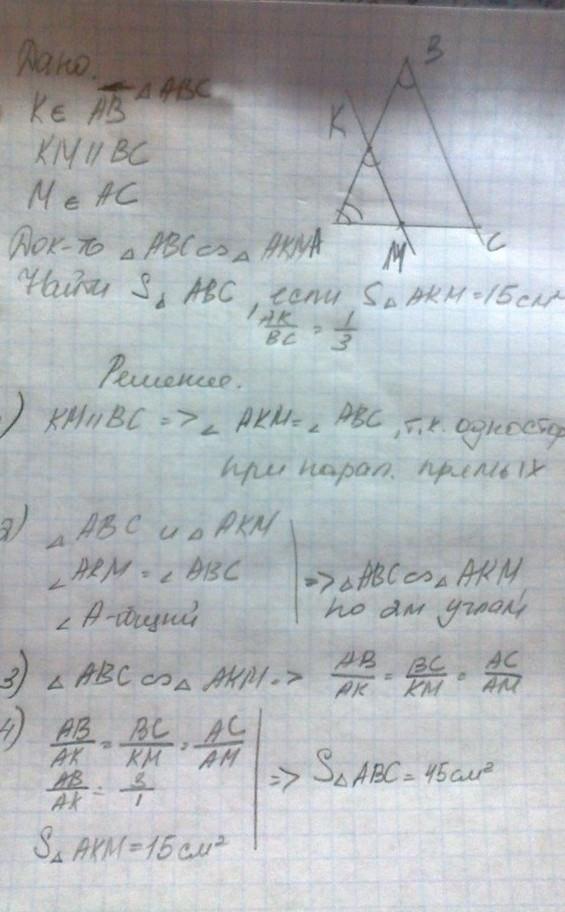 Дано.
△ ABC
K ∈ AB
KM || BC
M ∈ AC
B
K
A
M
C
Док-ть △ ABC ∽ △ AKM
Найти S△ ABC, если S△ AKM = 15 см²
AK/BC = 1/3
Решение.
1) KM || BC => ∠ AKM = ∠ ABC, т.к. одностор
при парал. прямых
2) △ ABC и △ AKM
∠ AKM = ∠ ABC
∠ A - общий
=> △ ABC ∽ △ AKM
по 2м углам
3) △ ABC ∽ △ AKM => AB/AK = BC/KM = AC/AM
4) AB/AK = BC/KM = AC/AM
AB/AK = 3/1
=> S△ ABC = 45 см²
S△ AKM = 15 см²